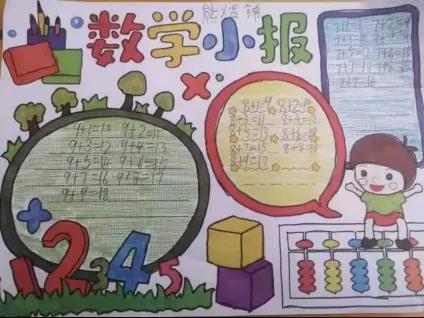 熊煜锦
数学小报
9+1=10 9+2=11
9+3=12 9+4=13
9+5=14 9+6=15
9+7=16 9+8=17
9+9=18
8+1=9 8+2=10
8+3=11 8+4=12
8+5=13 8+6=14
8+7=15 8+8=16
8+9=17
+
1 2 3 4 5